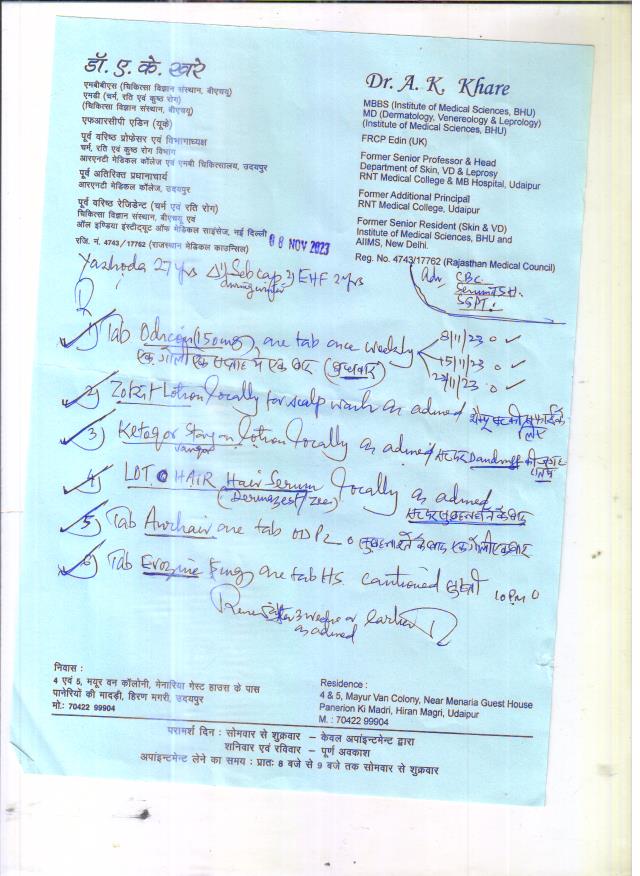 डॉ. ए. के. खरे
एमबीबीएस (चिकित्सा विज्ञान संस्थान, बीएचयू)
एमडी (चर्म, रति एवं कुष्ठ रोग)
(चिकित्सा विज्ञान संस्थान, बीएचयू)
एफआरसीपी एडिन (यूके)
पूर्व वरिष्ठ प्रोफेसर एवं विभागाध्यक्ष
चर्म, रति एवं कुष्ठ रोग विभाग
आरएनटी मेडिकल कॉलेज एवं एमबी चिकित्सालय, उदयपुर
पूर्व अतिरिक्त प्रधानाचार्य
आरएनटी मेडिकल कॉलेज, उदयपुर
पूर्व वरिष्ठ रेजिडेण्ट (चर्म एवं रति रोग)
चिकित्सा विज्ञान संस्थान, बीएचयू एवं
ऑल इण्डिया इंस्टीट्यूट ऑफ मेडिकल साइंसेज, नई दिल्ली
रजि. नं. 4743/17762 (राजस्थान मेडिकल काउन्सिल)
Dr. A. K. Khare
MBBS (Institute of Medical Sciences, BHU)
MD (Dermatology, Venereology & Leprology)
(Institute of Medical Sciences, BHU)
FRCP Edin (UK)
Former Senior Professor & Head
Department of Skin, VD & Leprosy
RNT Medical College & MB Hospital, Udaipur
Former Additional Principal
RNT Medical College, Udaipur
Former Senior Resident (Skin & VD)
Institute of Medical Sciences, BHU and
AIIMS, New Delhi.
Reg. No. 4743/17762 (Rajasthan Medical Council)
08 NOV 2023
Yashoda 27 yrs 1) Seb cap 2) EHF 2 yrs
Adv CBC
SGPT
1) Tab (150mg), one tab once weekly
8/11/23
15/11/23
एक गोली एक सप्ताह में एक बार (बुधवार)
2) Lotion locally for scalp wash as advised
3) Stay on lotion locally as advised Dandruff
4) HAIR Hair Serum locally as advised
5) Tab one tab OD
6) Tab 5mg one tab HS. cautioned 10 PM
Review after 3 weeks or earlier
as advised
निवास :
4 एवं 5, मयूर वन कॉलोनी, मेनारिया गेस्ट हाउस के पास
पानेरियों की मादड़ी, हिरण मगरी, उदयपुर
मो.: 70422 99904
Residence :
4 & 5, Mayur Van Colony, Near Menaria Guest House
Panerion Ki Madri, Hiran Magri, Udaipur
M. : 70422 99904
परामर्श दिन : सोमवार से शुक्रवार – केवल अपांइन्टमेन्ट द्वारा
शनिवार एवं रविवार – पूर्ण अवकाश
अपांइन्टमेन्ट लेने का समय : प्रातः 8 बजे से 9 बजे तक सोमवार से शुक्रवार